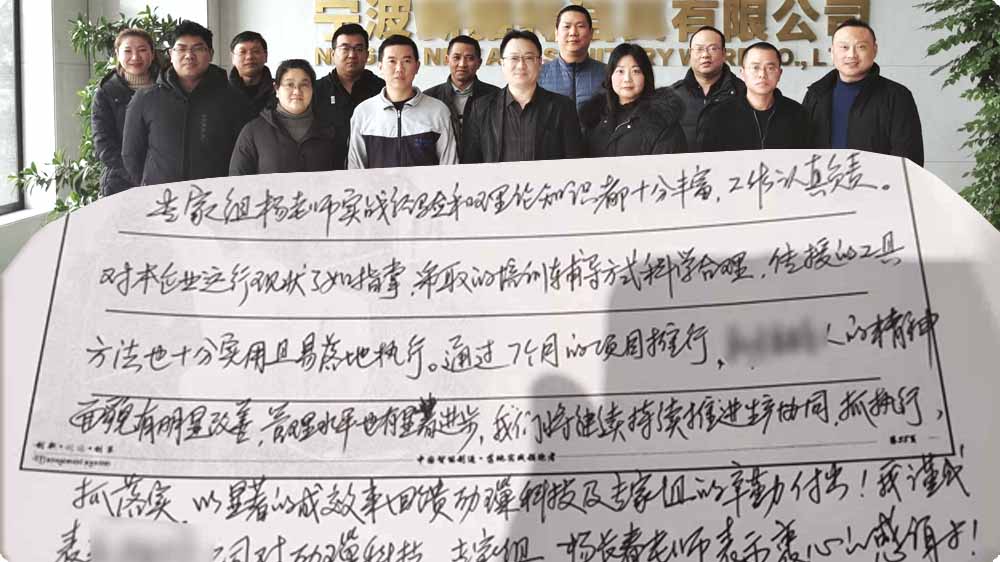 宁波 有限公司
NINGBO SANITARY WARE CO., L
专家组杨老师实战经验和理论知识都十分丰富，工作认真负责。
对本企业运行现状了如指掌，采取的培训辅导方式科学合理，传授的工具
方法也十分实用且易落地执行。通过7个月的项目推行， 人的精神
面貌有明显改善，管理水平也有显著进步，我们将继续持续推进生产协同，抓执行，
创新·
中国智能制造·落地实战领跑者
第55页
抓落实，以显著的成效来回馈 科技及专家组的辛勤付出！我谨代
表 司对 科技、专家组 杨长春老师表示衷心的感谢！